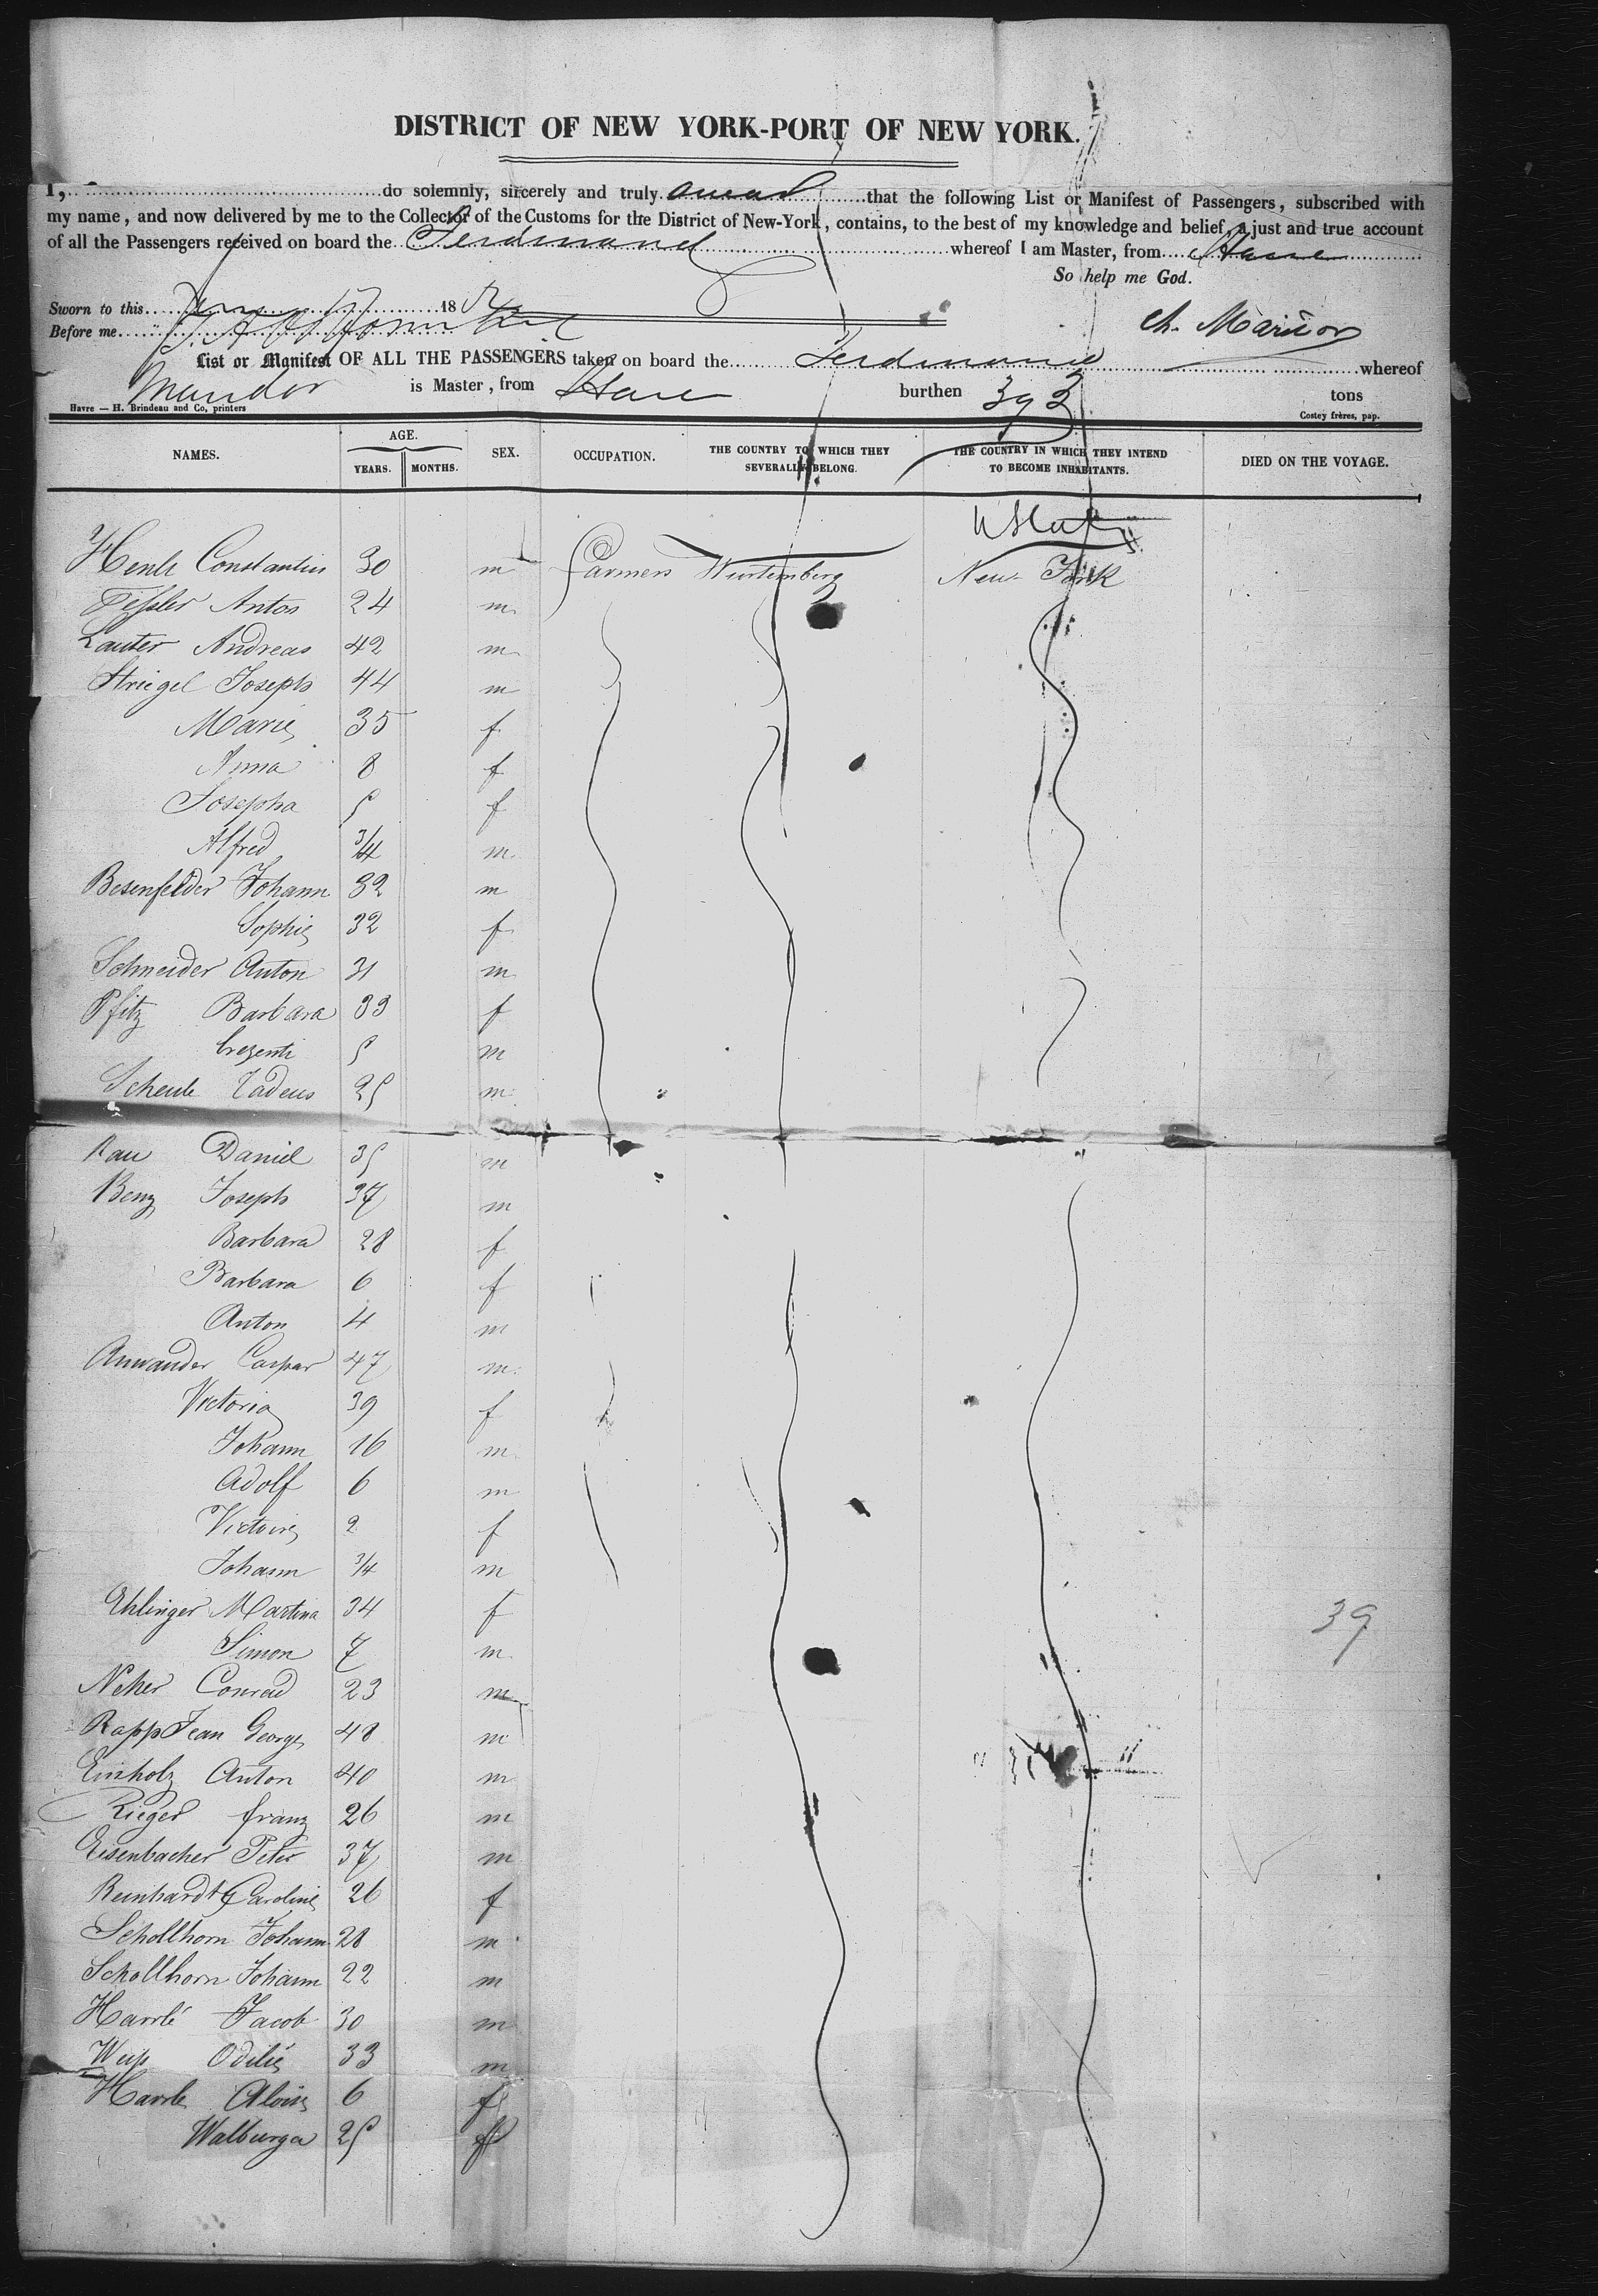 DISTRICT OF NEW YORK-PORT OF NEW YORK.
I, do solemnly, sincerely and truly swear that the following List or Manifest of Passengers, subscribed with
my name, and now delivered by me to the Collector of the Customs for the District of New-York, contains, to the best of my knowledge and belief, a just and true account
of all the Passengers received on board the Ferdinand whereof I am Master, from Havre
So help me God.
Sworn to this 18
Before me
List or Manifest OF ALL THE PASSENGERS taken on board the Ferdinand whereof
is Master, from Havre burthen 393 tons
Havre — H. Brindeau and Co, printers Costey frères, pap.
NAMES. AGE. YEARS. MONTHS. SEX. OCCUPATION. THE COUNTRY TO WHICH THEY SEVERALLY BELONG. THE COUNTRY IN WHICH THEY INTEND TO BECOME INHABITANTS. DIED ON THE VOYAGE.
Henle Constantin 30 m Farmers Wurtemberg New York
Fessler Anton 24 m
Lauter Andreas 42 m
Striegel Joseph 44 m
Marie 35 f
Anna 8 f
Josepha 5 f
Alfred 3/4 m
Besenfelder Johann 32 m
Sophie 32 f
Schneider Anton 31 m
Pfitz Barbara 33 f
Crezenti 5 m
Scheule Tadeus 25 m
Rau Daniel 35 m
Benz Joseph 37 m
Barbara 28 f
Barbara 6 f
Anton 4 m
Anwander Caspar 47 m
Victoria 39 f
Johann 16 m
Adolf 6 m
Victoire 2 f
Johann 3/4 m
Ehlinger Martina 34 f
39
Simon 7 m
Neher Conrad 23 m
Rapp Jean George 48 m
Einholz Anton 40 m
Rieger franz 26 m
Eisenbacher Peter 37 m
Reinhardt Caroline 26 f
Schollhorn Johann 28 m
Schollhorn Johann 22 m
Harrlé Jacob 30 m
Weiss Odilie 33 m
Harrle Aloise 6 f
Walburga 25 f